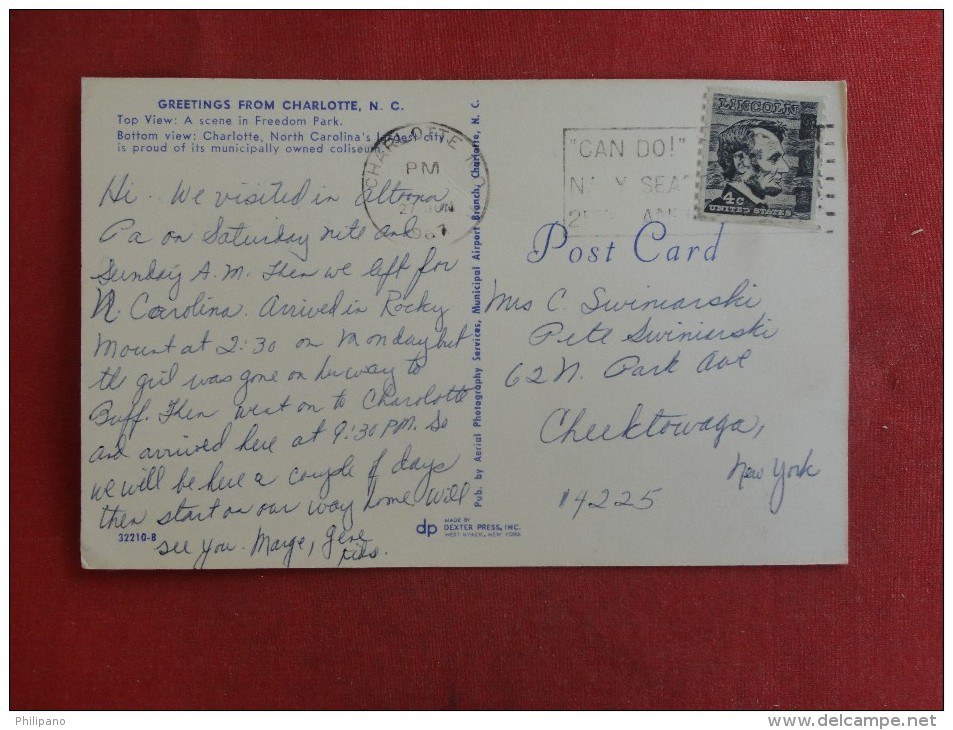 GREETINGS FROM CHARLOTTE, N. C.
Top View: A scene in Freedom Park.
Bottom view: Charlotte, North Carolina's largest city
is proud of its municipally owned coliseum.
Hi. We visited in Altoona
Pa on Saturday nite and
Sunday A.M. Then we left for
N. Carolina. Arrived in Rocky
Mount at 2:30 on Monday but
the girl was gone on her way to
Buff. Then went on to Charolotte
and arrived here at 9:30 PM. So
we will be here a couple of days
then start on our way home. Will
see you. Marge, Gene
kids.
32210-B
dp
MADE BY
DEXTER PRESS, INC.
WEST NYACK, NEW YORK
Pub. by Aerial Photography Services, Municipal Airport Branch, Charlotte, N. C.
CHARLOTTE
PM
27 JUN
1967
"CAN DO!"
LINCOLN
4c
UNITED STATES
Post Card
Mrs C. Swiniarski
Pete Swiniarski
62 N. Park Ave
Cheektowaga,
New York
14225
Philipano
www.delcampe.net